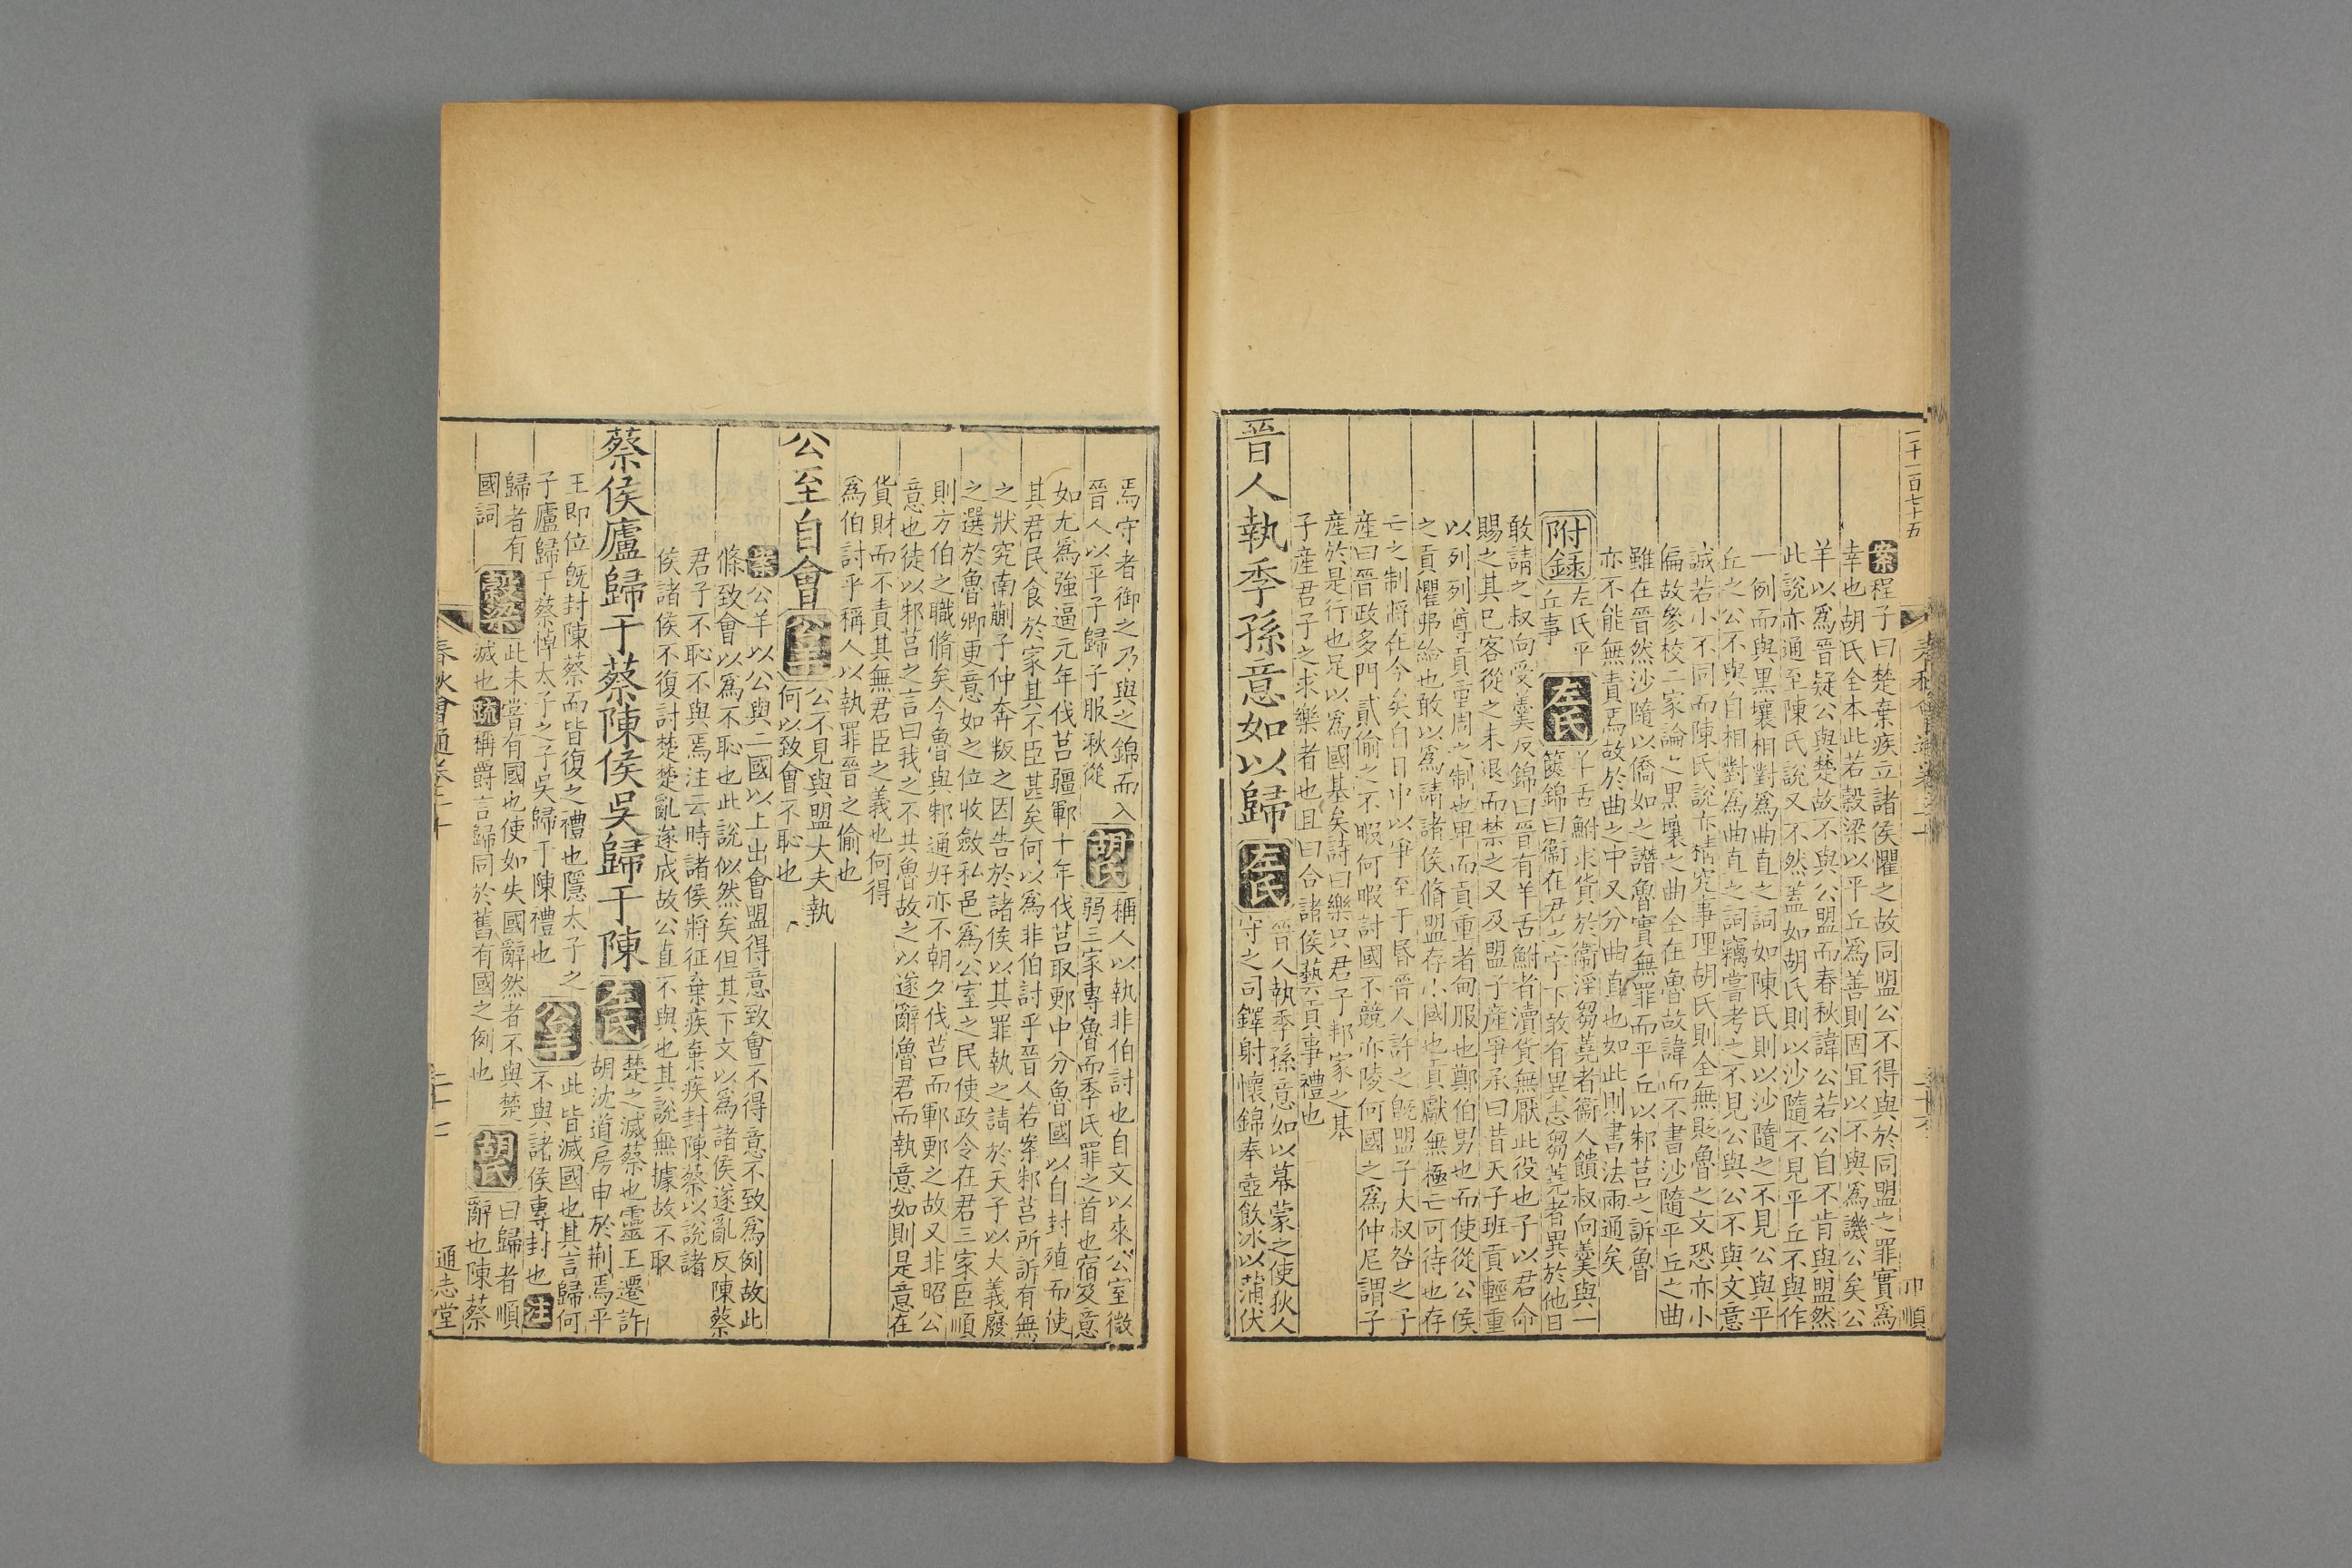 百七十五
案程子曰楚棄疾立諸侯懼之故同盟公不得與於同盟之罪實為
幸也胡氏全本此若穀梁以平丘為善則固宜以不與為譏公矣公
羊以為晉疑公與楚故不與公盟而春秋諱公若公自不肯與盟然
此說亦通至陳氏說又不然蓋如胡氏則以沙隨不見平丘不與作
一例而與黑壤相對為曲直之詞如陳氏則以沙隨之不見公與平
丘之公不與自相對為曲直之詞竊嘗考之不見公與公不與文意
誠若小不同而陳氏說亦精究事理胡氏則全無貶魯之文恐亦小
偏故參校二家論之黑壤之曲全在魯故諱而不書沙隨平丘之曲
雖在晉然沙隨以僑如之譖魯實無罪而平丘以邾莒之訴魯
亦不能無責焉故於曲之中又分曲直也如此則書法兩通矣
附錄左氏平丘事
左氏羊舌鮒求貨於衞淫芻蕘者衞人饋叔向羹與一
篋錦曰衞在君之宇下敢有異志芻蕘者異於他日
敢請之叔向受羹反錦曰晉有羊舌鮒者瀆貨無厭此役也子以君命
賜之其已客從之未退而禁之又及盟子產爭承曰昔天子班貢輕重
以列列尊貢重周之制也卑而貢重者甸服也鄭伯男也而使從公侯
之貢懼弗給也敢以為請諸侯脩盟存小國也貢獻無極亡可待也存
亡之制將在今矣自日中以爭至于昏晉人許之既盟子大叔咎之子
產曰晉政多門貳偷之不暇何暇討國不競亦陵何國之為仲尼謂子
產於是行也足以為國基矣詩曰樂只君子邦家之基
子產君子之求樂者也且曰合諸侯藝貢事禮也
晉人執季孫意如以歸
左氏晉人執季孫意如以幕蒙之使狄人
守之司鐸射懷錦奉壺飲冰以蒲伏
焉守者御之乃與之錦而入
晉人以平子歸子服湫從
胡氏稱人以執非伯討也自文以來公室微
弱三家專魯而季氏罪之首也宿及意
如尤為強逼元年伐莒疆鄆十年伐莒取郠中分魯國以自封殖而使
其君民食於家其不臣甚矣何以為非伯討乎晉人若案邾莒所訴有無
之狀究南蒯子仲奔叛之因告於諸侯以其罪執之請於天子以大義廢
之選於魯卿更意如之位收斂私邑為公室之民使政令在君三家臣順
則方伯之職脩矣今魯與邾通好亦不朝夕伐莒而鄆郠之故又非昭公
意也徒以邾莒之言曰我之不共魯故之以遂辭魯君而執意如則是意在
貨財而不責其無君臣之義也何得
為伯討乎稱人以執罪晉之偷也
公至自會
公羊公不見與盟大夫執
何以致會不恥也
案公羊以公與二國以上出會盟得意致會不得意不致為例故此
條致會以為不恥也此說似然矣但其下文以為諸侯遂亂反陳蔡
君子不恥不與焉注云時諸侯將征棄疾棄疾封陳蔡以說諸
侯諸侯不復討楚楚亂遂成故公直不與也其說無據故不取
蔡侯廬歸于蔡陳侯吳歸于陳
左氏楚之滅蔡也靈王遷許
胡沈道房申於荊焉平
王即位既封陳蔡而皆復之禮也隱大子之
子廬歸于蔡悼太子之子吳歸于陳禮也
公羊此皆滅國也其言歸何
不與諸侯專封也注
歸者有
國詞
穀梁此未嘗有國也使如失國辭然者不與楚
滅也疏稱爵言歸同於舊有國之例也
胡氏曰歸者順
辭也陳蔡
春秋會通卷二十
二十七
通志堂